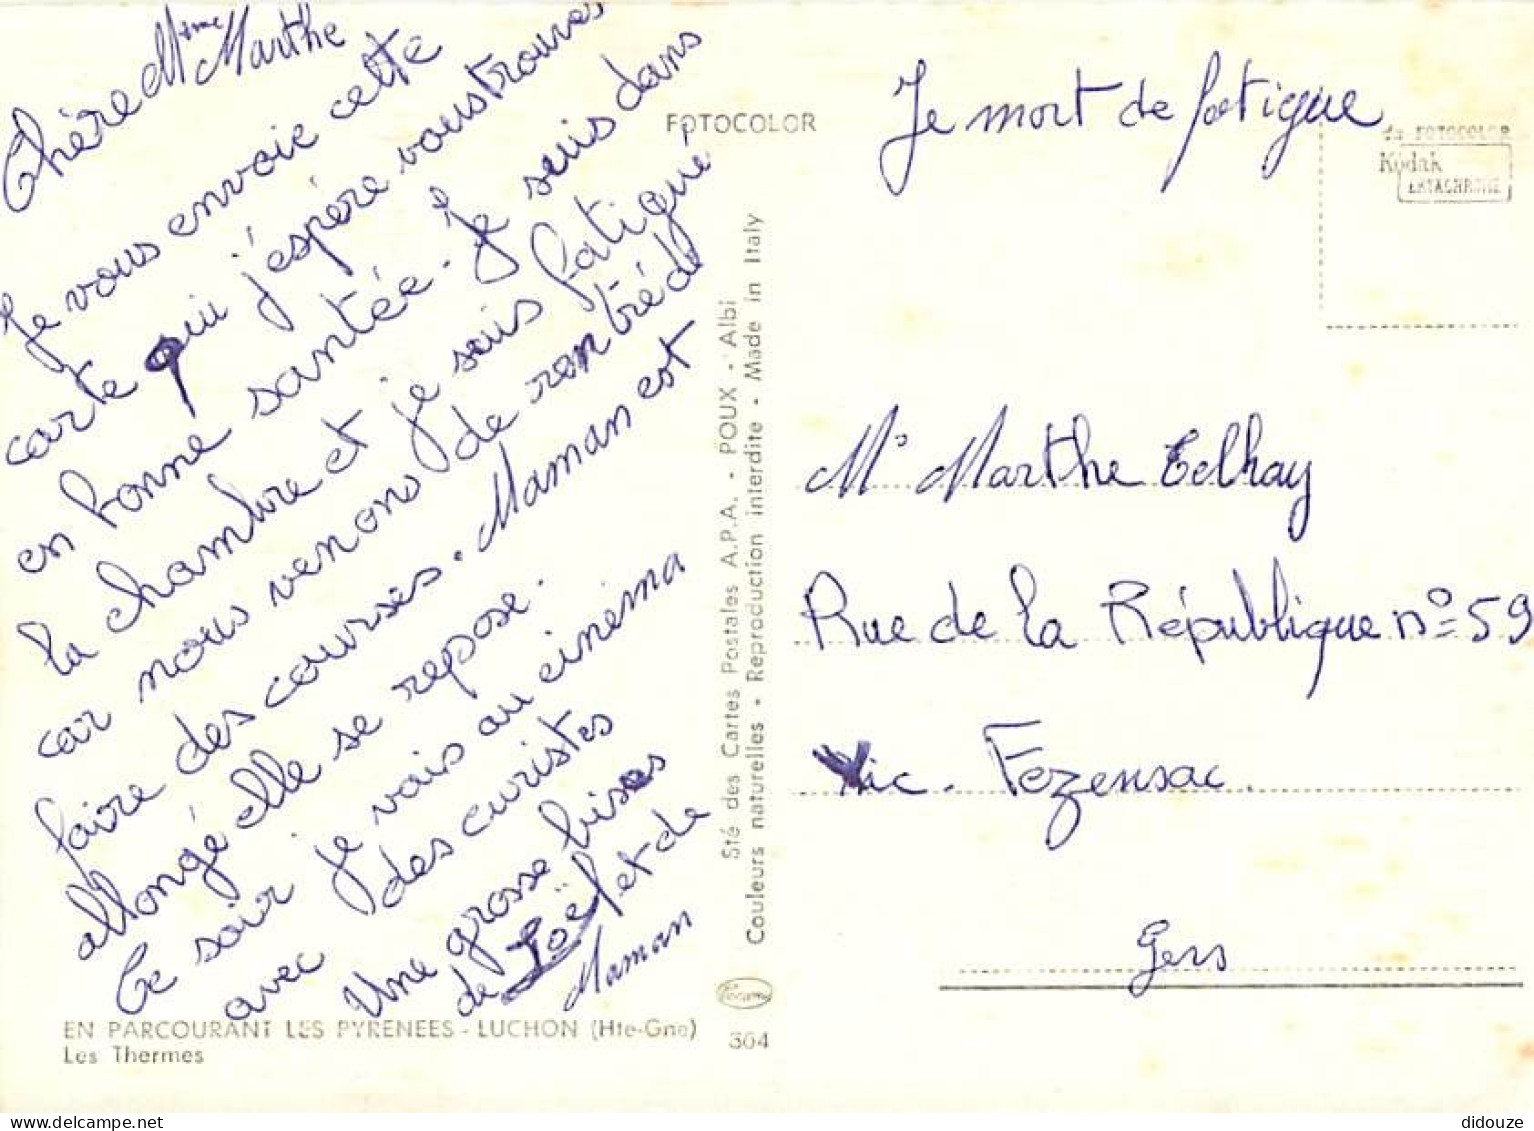 Chère Mme Marthe
Je vous envoie cette
carte qui j'espère vous trouves
en bonne santée. Je suis dans
la chambre et je suis fatigué
car nous venons de rentré de
faire des courses. Maman est
allongé elle se repose.
Ce soir je vais au cinema
avec des curistes
Une grosse bises
de Joël et de
Maman
EN PARCOURANT LES PYRENEES - LUCHON (Hte-Gne)
Les Thermes
FOTOCOLOR
Sté des Cartes Postales A.P.A. - POUX - Albi
Couleurs naturelles - Reproduction interdite - Made in Italy
304
Je mort de fatigue
da FOTOCOLOR
Kodak
EKTACHROME
Me Marthe Telhay
Rue de la République no 59
Vic. Fezensac.
Gers
delcampe.net
didouze